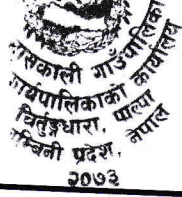 नासकाली गाउँपालिका
कार्यपालिकाको कार्यालय
चिर्तुङ्गधारा, पाल्पा
म्बिनी प्रदेश, नेपाल
२०७३